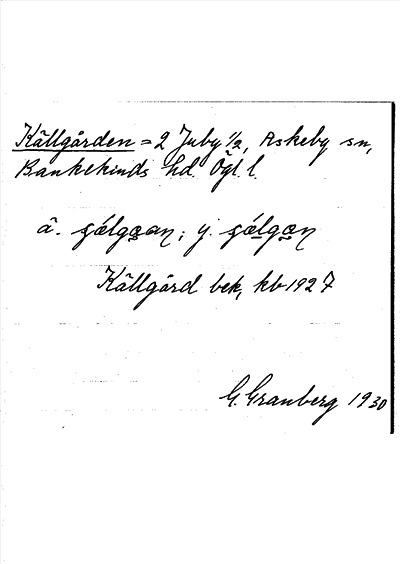 Källgården = 2 Juby 1/2, Askeby sn,
Bankekinds hd. Ögl. l.
ä. ; y.
Källgård bek, kb 1927
G. Granberg 1930